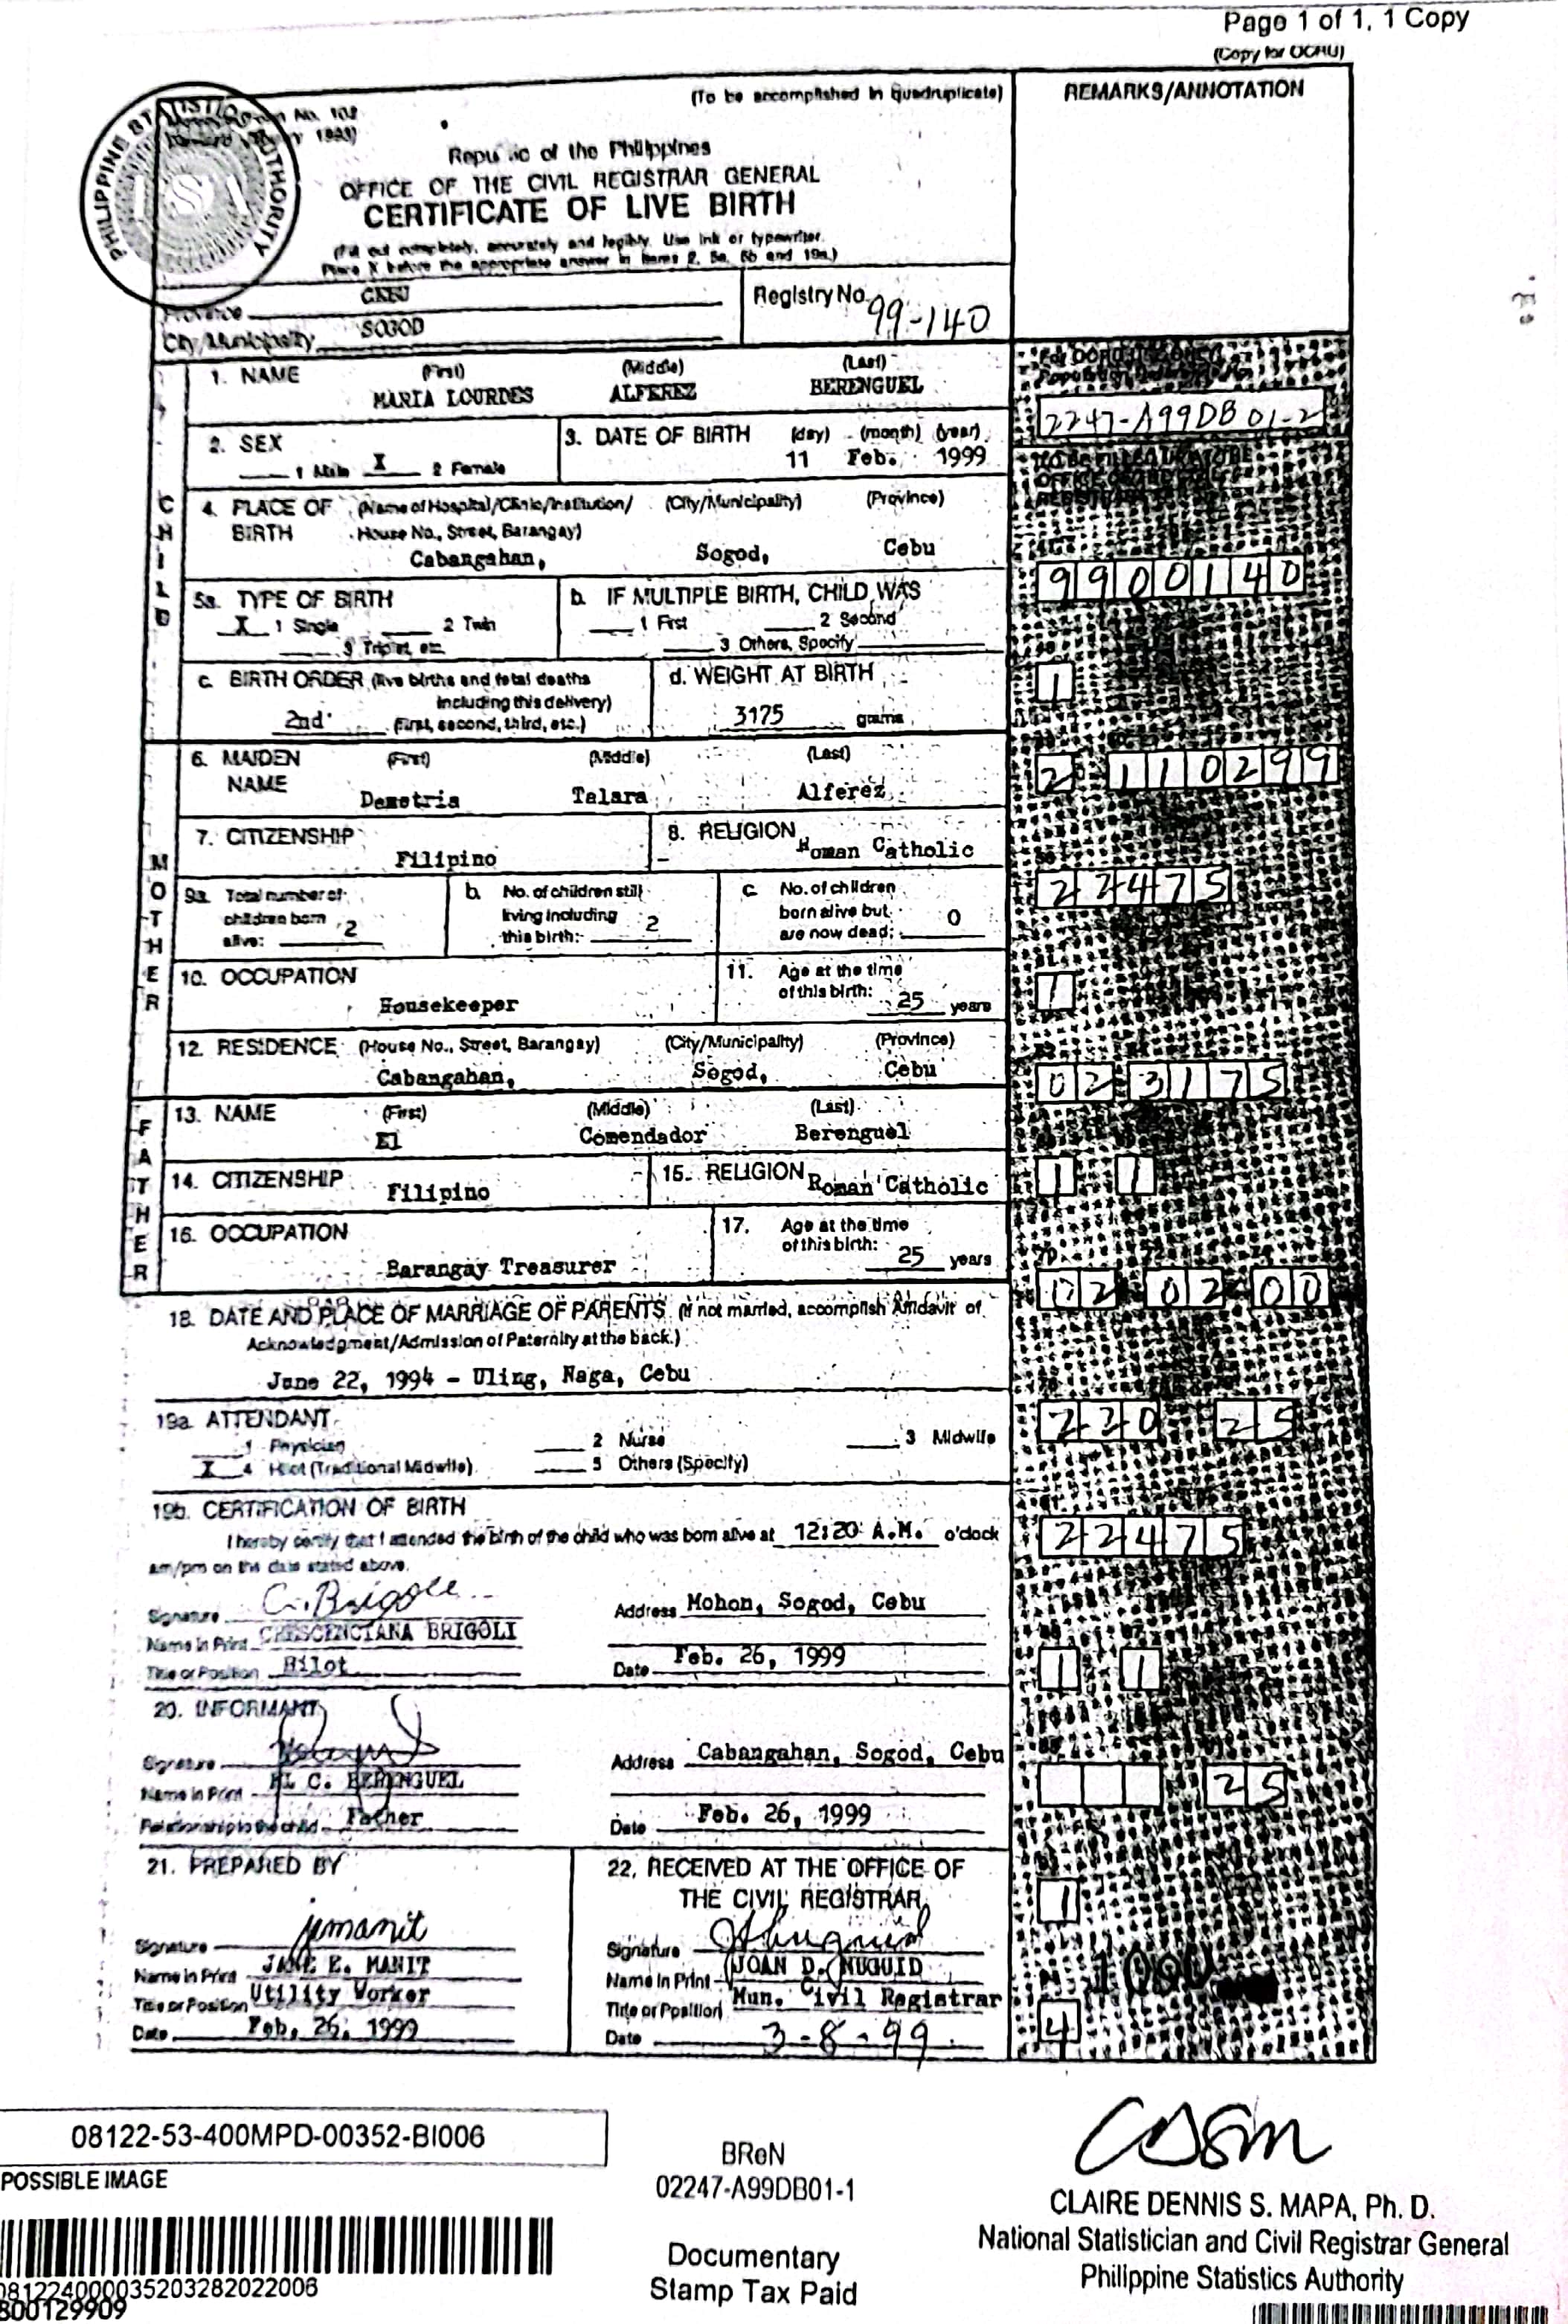 Page 1 of 1, 1 Copy
(Copy for OCRG)
(To be accomplished in quadruplicate)
REMARKS/ANNOTATION
PHILIPPINE STATISTICS AUTHORITY
Form No. 102
1993)
Republic of the Philippines
OFFICE OF THE CIVIL REGISTRAR GENERAL
CERTIFICATE OF LIVE BIRTH
(Fill out completely, accurately and legibly. Use ink or typewriter.
Place X before the appropriate answer in items 2, 5a, 5b and 19a.)
Province CEBU
City/Municipality SOGOD
Registry No. 99-140
CHILD
1. NAME (First) (Middle) (Last)
MARIA LOURDES ALFEREZ BERENGUEL
2247-A99DB01-2
2. SEX
1 Male X 2 Female
3. DATE OF BIRTH (day) (month) (year)
11 Feb. 1999
TO BE FILLED UP AT THE
4. PLACE OF BIRTH (Name of Hospital/Clinic/Institution/ House No., Street, Barangay) (City/Municipality) (Province)
Cabangahan, Sogod, Cebu
9900140
5a. TYPE OF BIRTH
X 1 Single 2 Twin
3 Triplet, etc.
b. IF MULTIPLE BIRTH, CHILD WAS
1 First 2 Second
3 Others, Specify
c. BIRTH ORDER (live births and fetal deaths
including this delivery)
2nd (First, second, third, etc.)
d. WEIGHT AT BIRTH
3175 grams
1
MOTHER
6. MAIDEN NAME (First) (Middle) (Last)
Demetria Talara Alferez
2 110299
7. CITIZENSHIP
Filipino
8. RELIGION Roman Catholic
9a. Total number of children born alive: 2
b. No. of children still living including this birth: 2
c. No. of children born alive but are now dead: 0
22475
10. OCCUPATION
Housekeeper
11. Age at the time of this birth: 25 years
1
12. RESIDENCE (House No., Street, Barangay) (City/Municipality) (Province)
Cabangahan, Sogod, Cebu
02 3175
FATHER
13. NAME (First) (Middle) (Last)
El Comendador Berenguel
14. CITIZENSHIP Filipino
15. RELIGION Roman Catholic
1 1
16. OCCUPATION
Barangay Treasurer
17. Age at the time of this birth: 25 years
02 02 00
18. DATE AND PLACE OF MARRIAGE OF PARENTS (If not married, accomplish Affidavit of
Acknowledgment/Admission of Paternity at the back.)
June 22, 1994 - Uling, Naga, Cebu
19a. ATTENDANT
1 Physician 2 Nurse 3 Midwife
X 4 Hilot (Traditional Midwife) 5 Others (Specify)
220 25
19b. CERTIFICATION OF BIRTH
I hereby certify that I attended the birth of the child who was born alive at 12:20 A.M. o'clock
am/pm on the date stated above.
22475
Signature C. Brigole
Name in Print CRESCENCIANA BRIGOLI
Title or Position Hilot
Address Mohon, Sogod, Cebu
Date Feb. 26, 1999
1 1
20. INFORMANT
Signature
Name in Print EL C. BERENGUEL
Relationship to the child Father
Address Cabangahan, Sogod, Cebu
Date Feb. 26, 1999
25
21. PREPARED BY
Signature jemanit
Name in Print JANE E. MANIT
Title or Position Utility Worker
Date Feb. 26, 1999
22. RECEIVED AT THE OFFICE OF
THE CIVIL REGISTRAR
Signature
Name in Print JOAN D. NUGUID
Title or Position Mun. Civil Registrar
Date 3-8-99
1
4
08122-53-400MPD-00352-BI006
POSSIBLE IMAGE
081224000035203282022006
800129909
BReN
02247-A99DB01-1
Documentary
Stamp Tax Paid
CLAIRE DENNIS S. MAPA, Ph. D.
National Statistician and Civil Registrar General
Philippine Statistics Authority